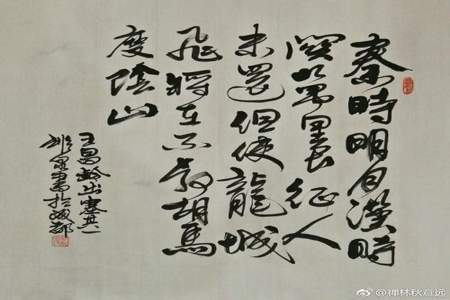 秦時明月漢時
關萬里長征人
未還但使龍城
飛將在不教胡馬
度陰山
王昌齡出塞其一
書於成都
@禅林秋意远